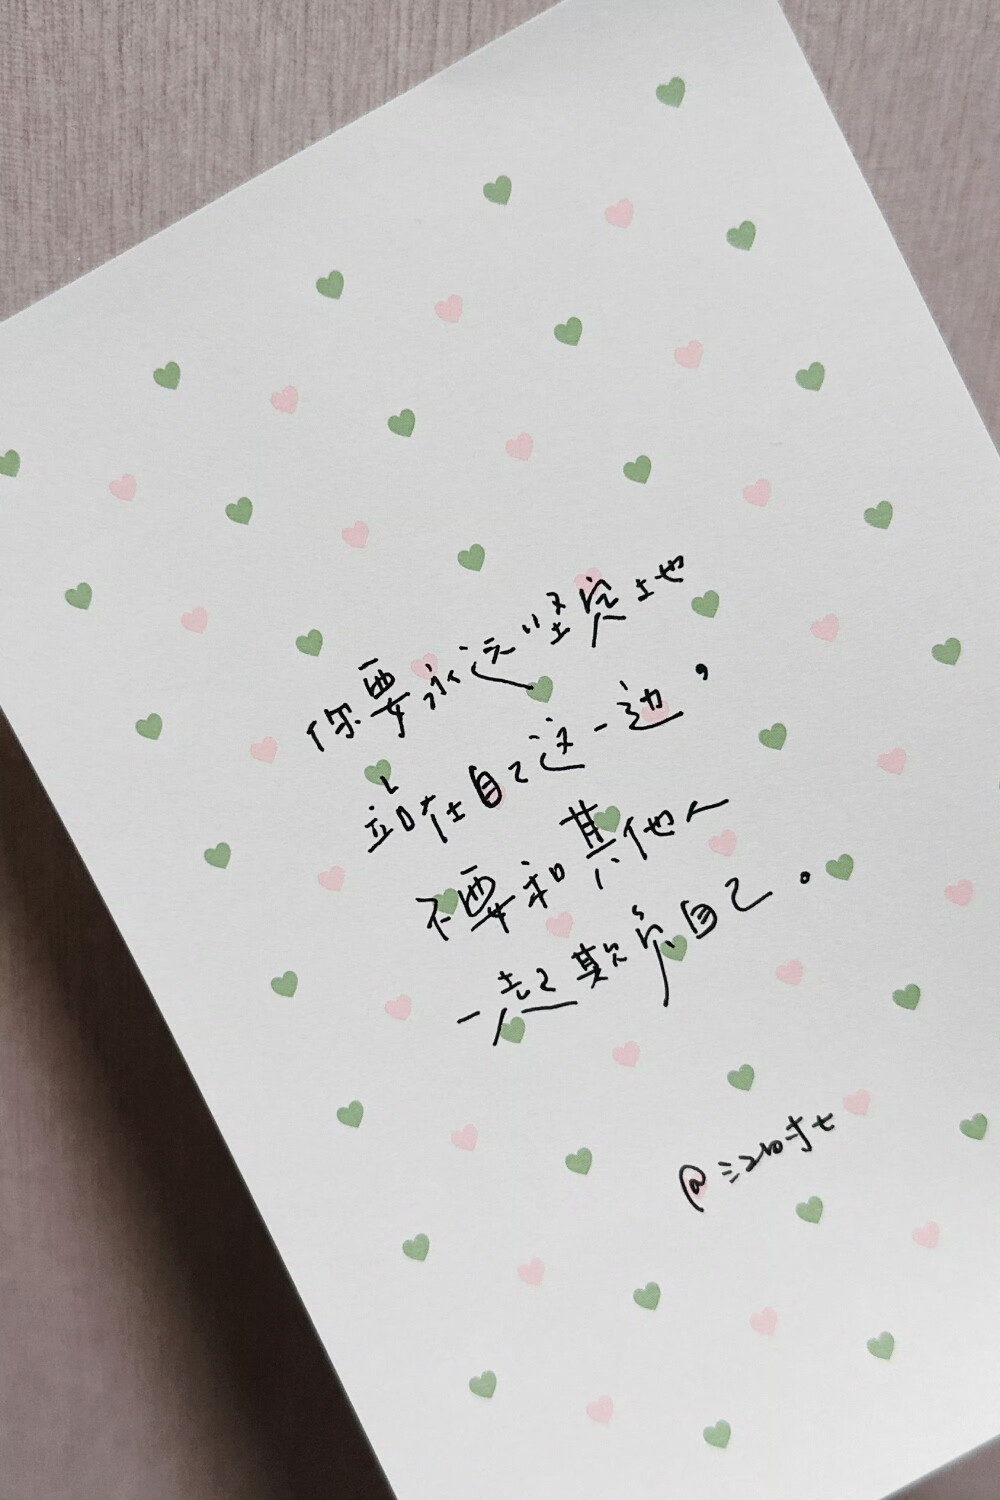 你要永远坚定地
站在自己这一边，
不要和其他人
一起欺负自己。